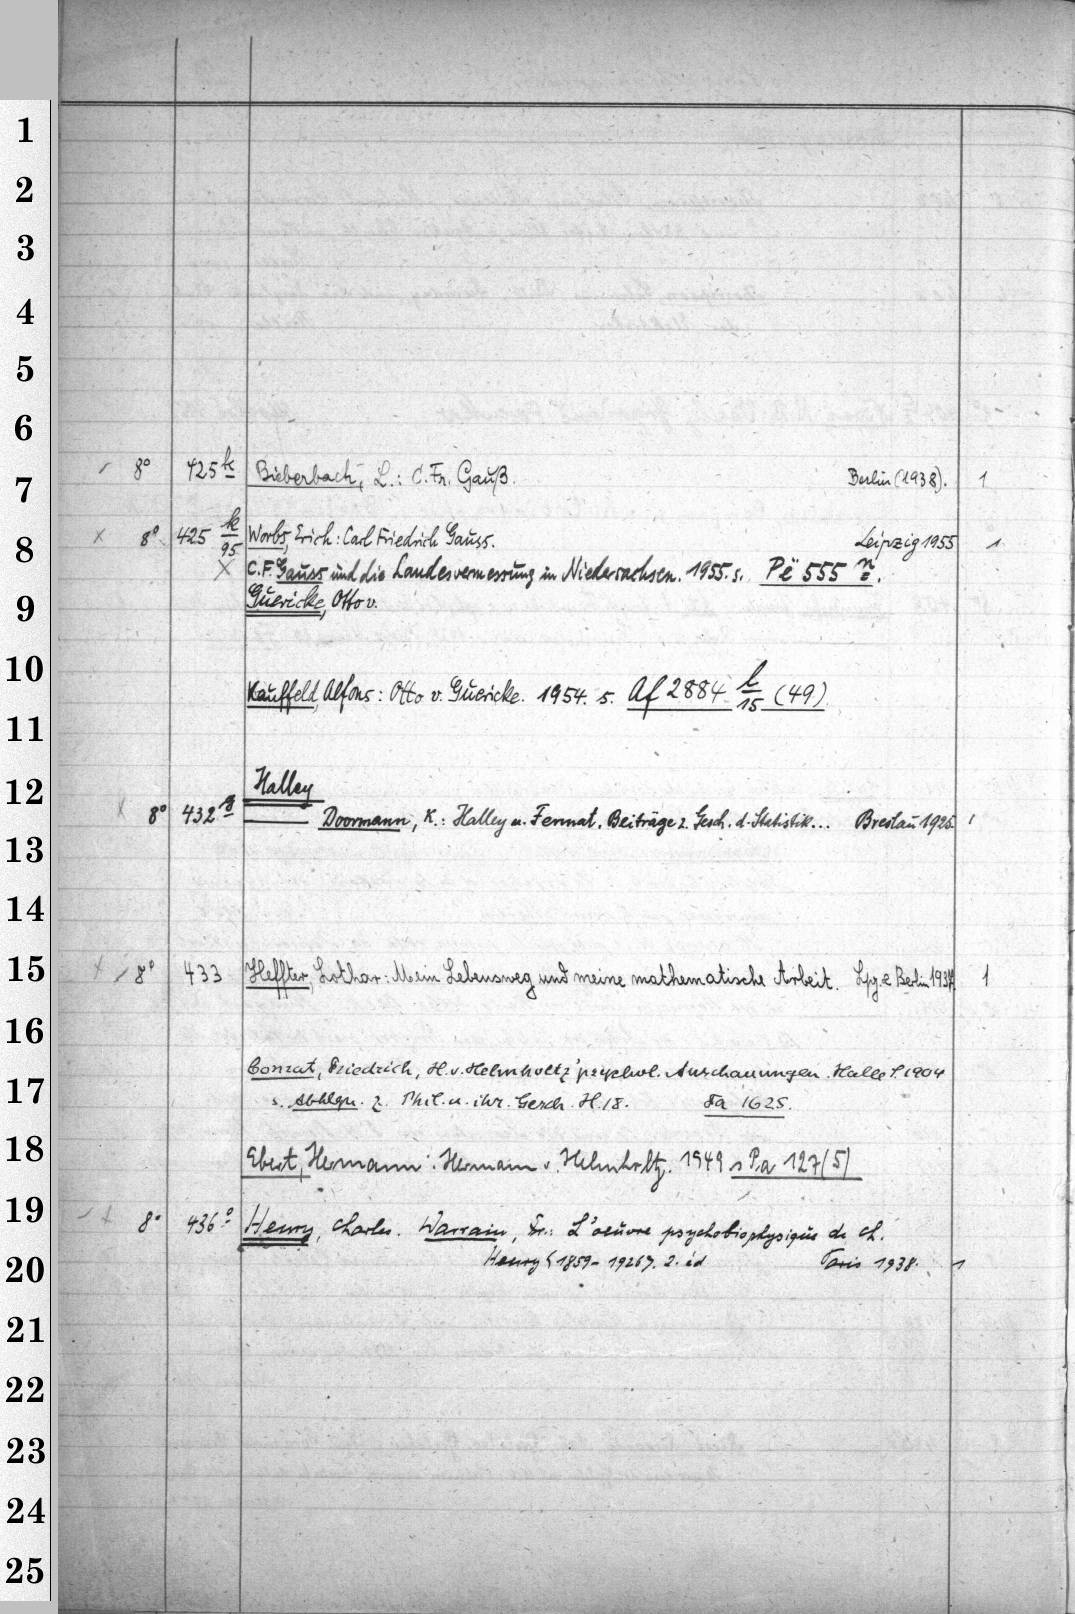 1
2
3
4
5
6
7
8° 425 k Bieberbach, L.: C. Fr. Gauß. Berlin (1938). 1
8
x 8° 425 k/95 Worbs, Erich: Carl Friedrich Gauss. Leipzig 1955 1
x C.F. Gauss und die Landesvermessung in Niedersachsen. 1955. s. Pë 555 n.
9
Guericke, Otto v.
10
Kauffeld, Alfons: Otto v. Guericke. 1954. s. Af 2884 l/15 (49)
11
12
Halley
x 8° 432 g Doormann, K.: Halley u. Fermat. Beiträge z. Gesch. d. Statistik... Breslau 1925 1
13
14
15
8° 433 Heffter, Lothar: Mein Lebensweg und meine mathematische Arbeit. Lpz. & Berlin 1937. 1
16
Conrat, Friedrich, H. v. Helmholtz' psychol. Anschauungen. Halle S. 1904
17
s. Abhlgn. z. Phil. u. ihr. Gesch. H. 18. Fa 1625.
18
Ebert, Hermann: Hermann v. Helmholtz. 1949 s Pa 127(5)
19
8° 436 e Henry, Charles. Warrain, Fr.: L'oeuvre psychobiophysique de Ch.
20
Henry (1859-1926). 2. éd Paris 1938. 1
21
22
23
24
25